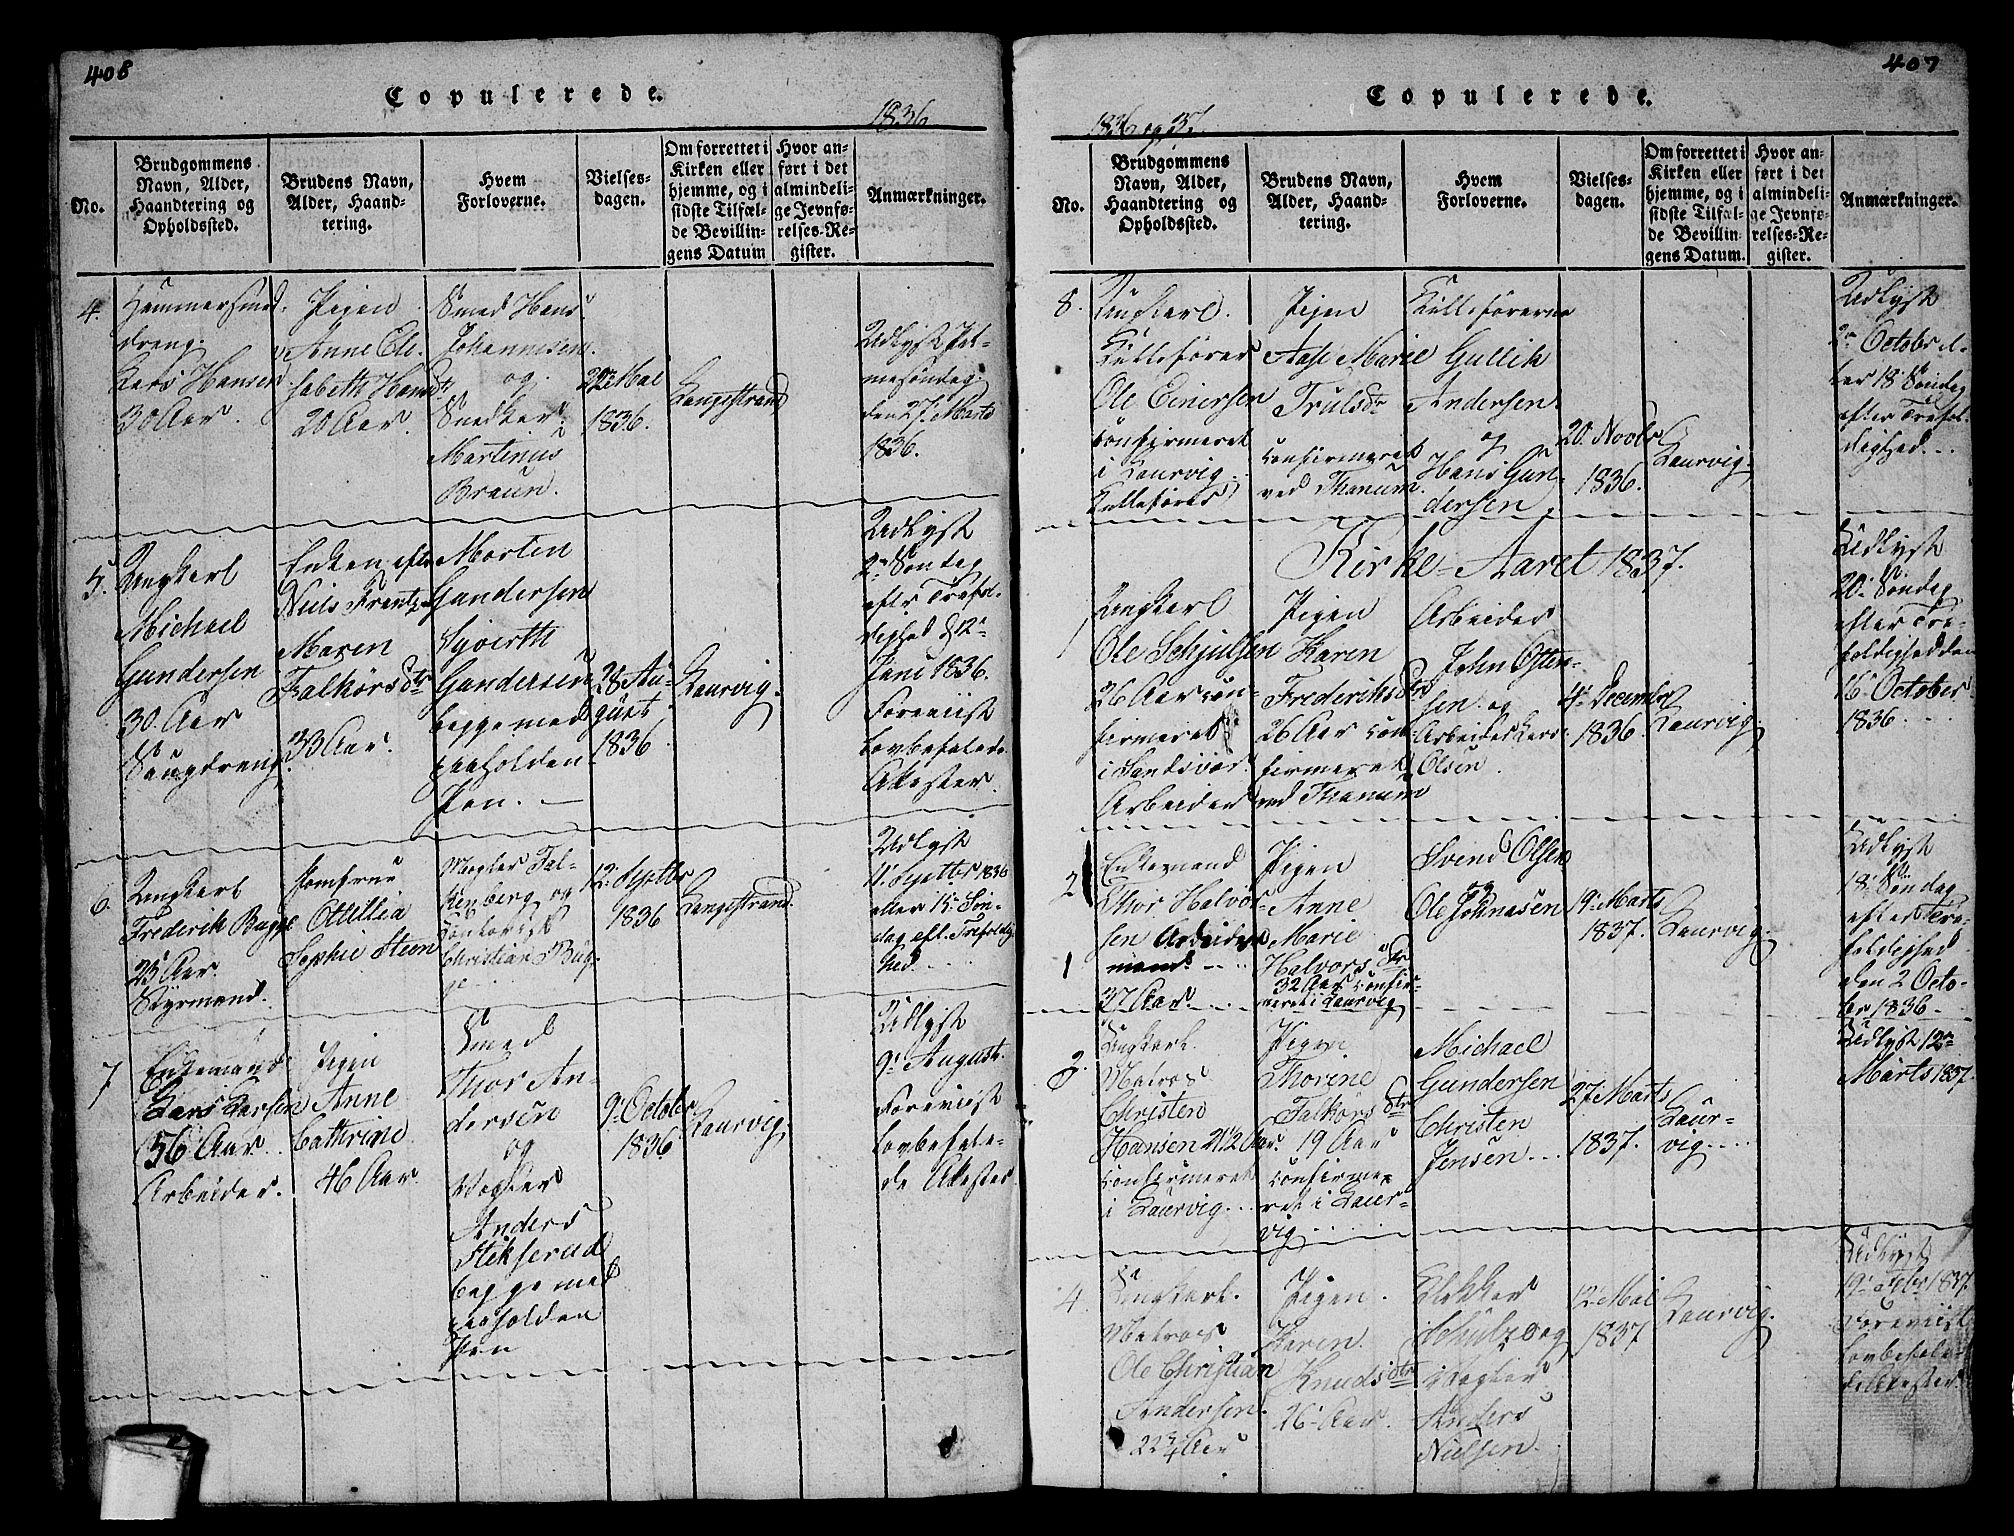 406
Copulerede.
1836
No.
Brudgommens Navn, Alder, Haandtering og Opholdssted.
Brudens Navn, Alder, Haandtering.
Hvem Forloverne.
Vielsesdagen.
Om forrettet i Kirken eller hjemme, og i sidste Tilfælde Bevillingens Datum
Hvor anført i det almindelige Jevnførelses-Register.
Anmærkninger.
4.
Hammersmed-
dreng.
Lars Hansen
30 Aar
Pigen
Anne Eli-
sabeth Hansdtr
20 Aar.
Smed Hans
Johannesen
og
Snedker
Martinus
Braun.
22de Mai
1836.
Langestrand
Udlyst Pal-
mesøndag
den 27. Marts
1836.
5.
Ungkarl
Michael
Gundersen
30 Aar
Saugdreng.
Enken efter
Niels Frantz
Maren
Falkørsdtr
33 Aar.
Morten
Gundersen
Syverth
Gundersen
begge med
paaholden
Pen. —
28 Au-
gust
1836
Laurvig.
Udlyst
2n Søndag
efter Trefol-
dighed d 12te
Juni 1836.
Foreviist
lovbefalede
Attester.
6.
Ungkarl
Frederik Bugge
25 Aar.
Styrmand.
Jomfrue
Otillia
Sophie Steen
Vogter Fal-
kenberg og
Contorist
Christian Bug-
ge
12. Septbr
1836
Langestrand.
Udlyst
11. Septbr 1836
eller 15. Søn-
dag eft. Trefoldig-
hed.
7
Enkemand
Lars Larsen
56 Aar
Arbeider.
Pigen
Anne
Cathrine
46 Aar
Smed
Thor An-
dersen
og
Vogter
Anders
Stikserud
begge med
paaholden
Pen
9. October
1836
Laurvig.
Udlyst
9. August.
Foreviist
lovbefale-
de Attester
407
Copulerede.
1836 og 37.
No.
Brudgommens Navn, Alder, Haandtering og Opholdssted.
Brudens Navn, Alder, Haandtering.
Hvem Forloverne.
Vielsesdagen.
Om forrettet i Kirken eller hjemme, og i sidste Tilfælde Bevillingens Datum.
Hvor anført i det almindelige Jevnførelses-Register.
Anmærkninger.
8.
Ungkarl.
Kullefører
Ole Einersen
confirmeret
i Laurvig
Kullefører
Pigen
Aase Marie
Trulsdtr
confirmeret
ved Thanum.
Kulleførerne
Gullik
Andersen
og
Hans Gun-
dersen
20. Novbr
1836.
Laurvig.
Udlyst
2n October el-
ler 18. Søndag
efter Trefol-
dighed.
Kirke-Aaret 1837.
1
Ungkarl
Ole Schjulsen
26 Aar con-
firmeret
i Sandsvær
Arbeider
Pigen
Karen
Frederiksdtr
26 Aar con-
firmeret
ved Thanum
Arbeider
John Osten-
sen og
Arbeider Lars
Olsen.
4. December
1836.
Laurvig.
Udlyst
20. Søndag
efter Tre-
foldighed den
16. October
1836.
2
1
Enkemand
Thor Halvor-
sen Arbeids-
mand.
37 Aar
Pigen
Anne
Marie
Halvorsdtr
32 Aar confir-
meret i Laurvig
Svend Olsen
Ole Johnasen
19. Marts
1837.
Laurvig.
Udlyst
18. Søndag
efter Tre-
foldighed
den 2 Octo-
ber 1836.
3.
Ungkarl.
Matros
Christen
Hansen 21 1/2 Aar.
confirmeret
i Laurvig
Pigen
Thorine
Falkørsdtr
19 Aar
confirme-
ret i Laur-
vig
Michael
Gundersen
Christen
Jensen
27. Marts
1837.
Laur-
vig.
Udlyst 12te
Marts 1837.
4.
Ungkarl.
Matros
Ole Christian
Andersen.
22 3/4 Aar
Pigen.
Karen
Knudsdtr
26 Aar.
Schultz og
Vogter
Anders
Nielsen.
12. Mai
1837
Laurvig.
Udlyst
19. Febr 1837.
Foreviist
lovbefale-
de Attester.